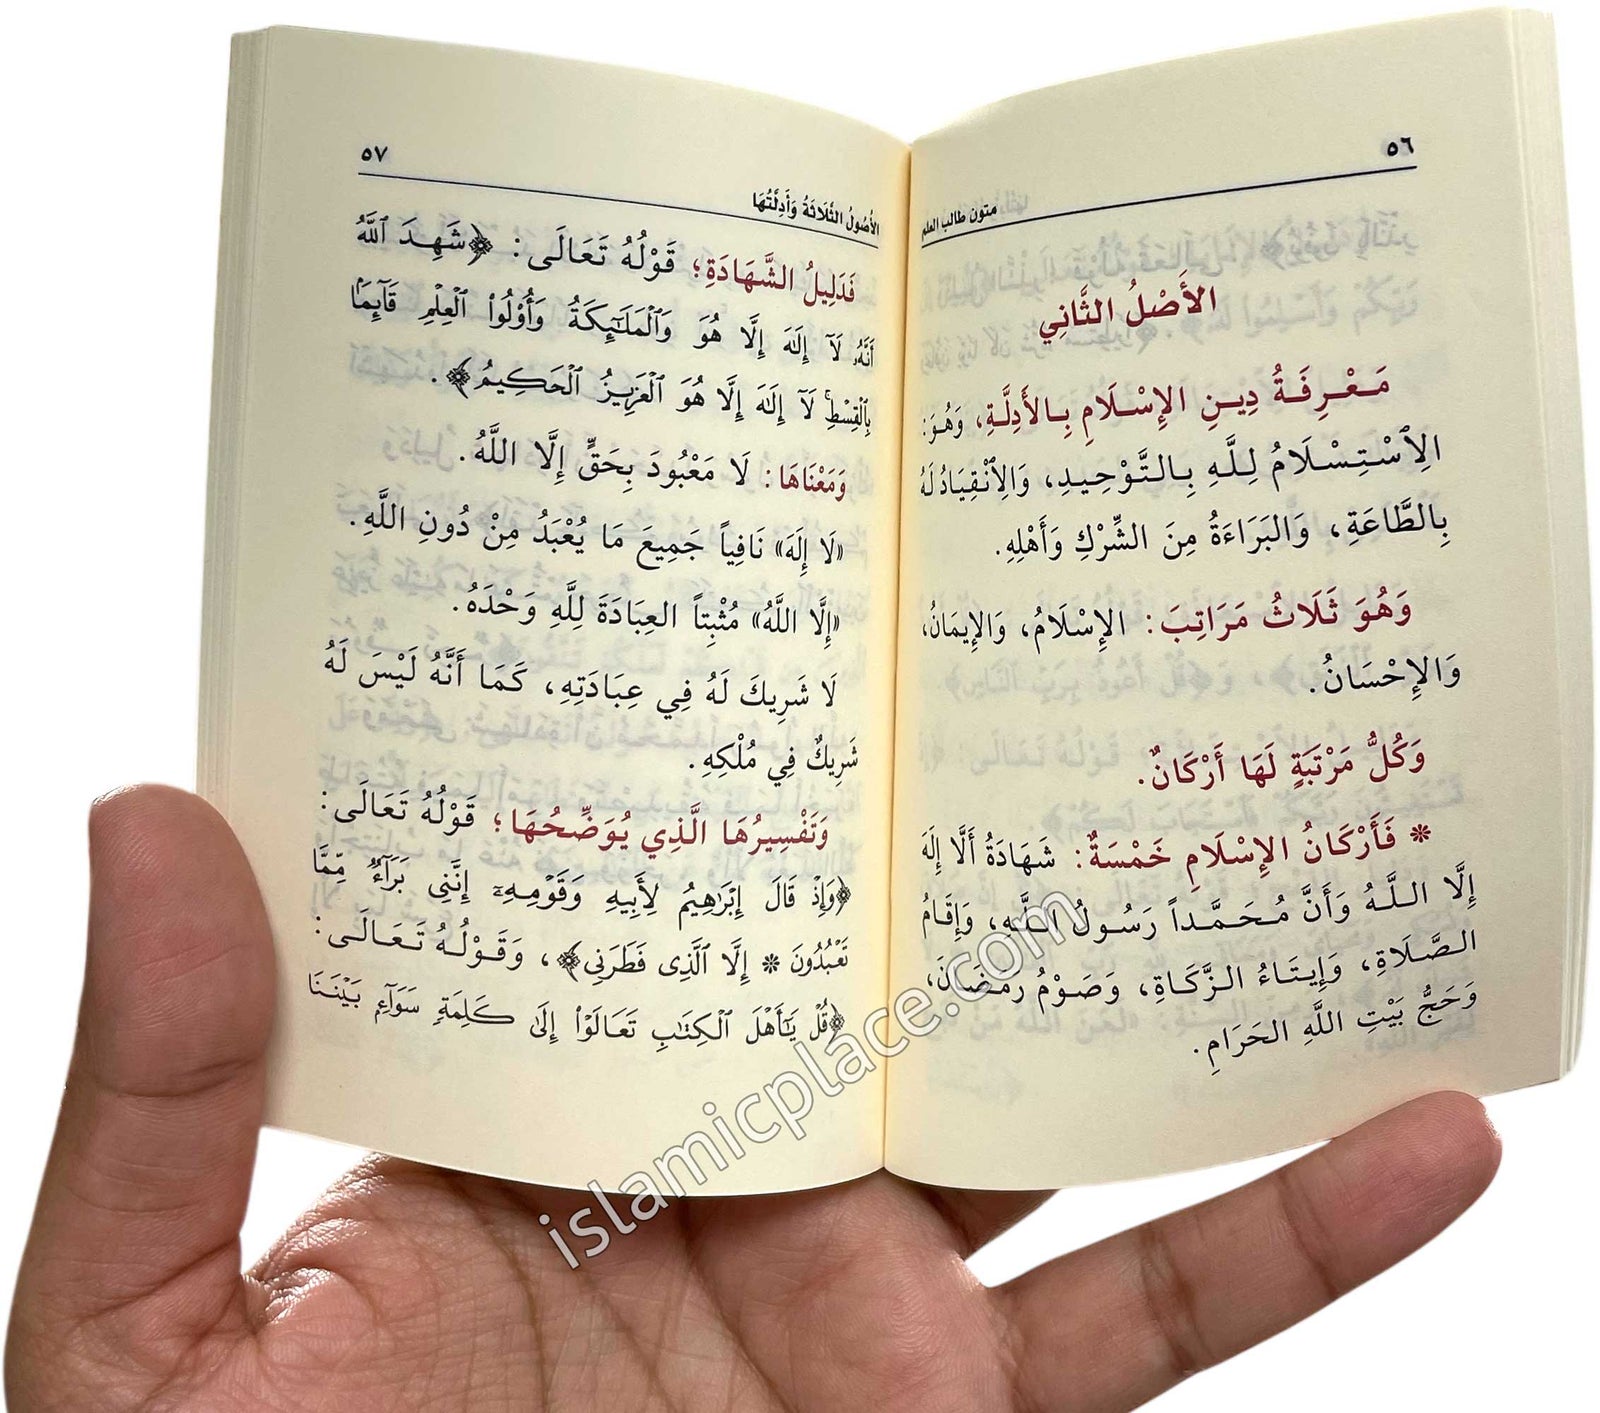 ٥٦
متون طالب العلم
الأَصْلُ الثَّانِي
مَعْرِفَةُ دِينِ الإِسْلَامِ بِالأَدِلَّةِ، وَهُوَ:
الِاسْتِسْلَامُ لِلَّهِ بِالتَّوْحِيدِ، وَالِانْقِيَادُ لَهُ
بِالطَّاعَةِ، وَالبَرَاءَةُ مِنَ الشِّرْكِ وَأَهْلِهِ.
وَهُوَ ثَلَاثُ مَرَاتِبَ: الإِسْلَامُ، وَالإِيمَانُ،
وَالإِحْسَانُ.
وَكُلُّ مَرْتَبَةٍ لَهَا أَرْكَانٌ.
* فَأَرْكَانُ الإِسْلَامِ خَمْسَةٌ: شَهَادَةُ أَلَّا إِلَهَ
إِلَّا اللَّهُ وَأَنَّ مُحَمَّداً رَسُولُ اللَّهِ، وَإِقَامُ
الصَّلَاةِ، وَإِيتَاءُ الزَّكَاةِ، وَصَوْمُ رَمَضَانَ،
وَحَجُّ بَيْتِ اللَّهِ الحَرَامِ.
٥٧
الأُصُولُ الثَّلَاثَةُ وَأَدِلَّتُهَا
فَدَلِيلُ الشَّهَادَةِ؛ قَوْلُهُ تَعَالَى: ﴿شَهِدَ ٱللَّهُ
أَنَّهُۥ لَآ إِلَٰهَ إِلَّا هُوَ وَٱلْمَلَٰٓئِكَةُ وَأُو۟لُوا۟ ٱلْعِلْمِ قَآئِمًۢا
بِٱلْقِسْطِۚ لَآ إِلَٰهَ إِلَّا هُوَ ٱلْعَزِيزُ ٱلْحَكِيمُ﴾.
وَمَعْنَاهَا: لَا مَعْبُودَ بِحَقٍّ إِلَّا اللَّهُ.
«لَا إِلَهَ» نَافِياً جَمِيعَ مَا يُعْبَدُ مِنْ دُونِ اللَّهِ.
«إِلَّا اللَّهُ» مُثْبِتاً العِبَادَةَ لِلَّهِ وَحْدَهُ.
لَا شَرِيكَ لَهُ فِي عِبَادَتِهِ، كَمَا أَنَّهُ لَيْسَ لَهُ
شَرِيكٌ فِي مُلْكِهِ.
وَتَفْسِيرُهَا الَّذِي يُوَضِّحُهَا؛ قَوْلُهُ تَعَالَى:
﴿وَإِذْ قَالَ إِبْرَٰهِيمُ لِأَبِيهِ وَقَوْمِهِۦٓ إِنَّنِى بَرَآءٌ مِّمَّا
تَعْبُدُونَ * إِلَّا ٱلَّذِى فَطَرَنِى﴾، وَقَوْلُهُ تَعَالَى:
﴿قُلْ يَٰٓأَهْلَ ٱلْكِتَٰبِ تَعَالَوْا۟ إِلَىٰ كَلِمَةٍ سَوَآءٍۭ بَيْنَنَا
islamicplace.com